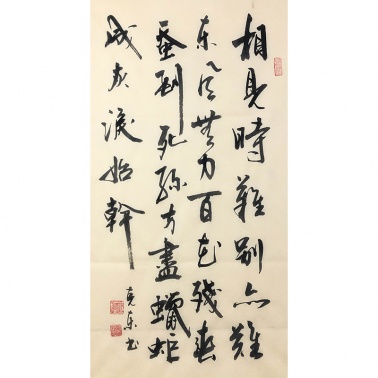 相見時難別亦難
東風無力百花殘春
蚕到死絲方盡蠟炬
成灰淚始幹
克東书